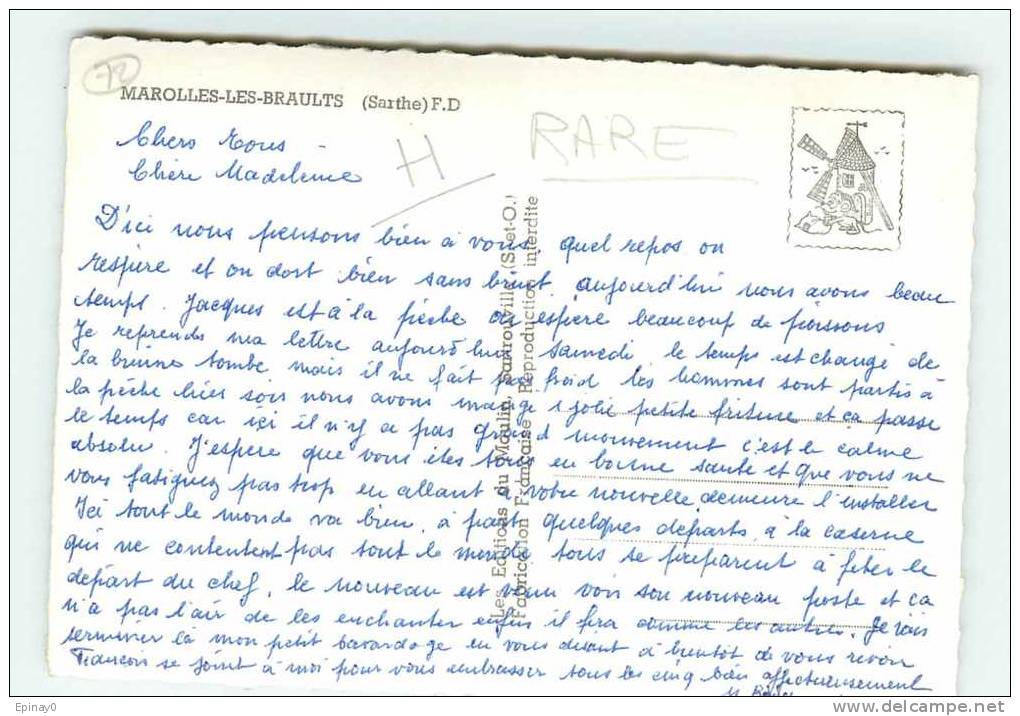 72
MAROLLES-LES-BRAULTS (Sarthe) F.D
H
RARE
Chers tous -
Chère Madeleine
D'ici nous pensons bien à vous quel repos on
respire et on dort bien sans bruit. aujourd'hui nous avons beau
temps. Jacques est à la pêche on espère beaucoup de poissons
Je reprends ma lettre aujourd'hui samedi le temps est changé de
la bruine tombe mais il ne fait pas froid les hommes sont partis à
la pêche hier soir nous avons mangé 1 jolie petite friture et ça passe
le temps car ici il n'y a pas grand mouvement c'est le calme
absolu. J'espère que vous êtes tous en bonne santé et que vous ne
vous fatiguez pas trop en allant à votre nouvelle demeure l'installer
Ici tout le monde va bien, à part quelques départs à la caserne
qui ne contentent pas tout le monde tous se préparent à fêter le
départ du chef, le nouveau est venu voir son nouveau poste et ça
n'a pas l'air de les enchanter enfin il fera comme les autres. Je vais
terminer là mon petit bavardage en vous disant à bientôt de vous revoir
François se joint à moi pour vous embrasser tous les cinq bien affectueusement
M.
Les Editions du Moulin, Sartrouville (S.-et-O.)
Fabrication Française Reproduction interdite
Epinay0
www.delcampe.net